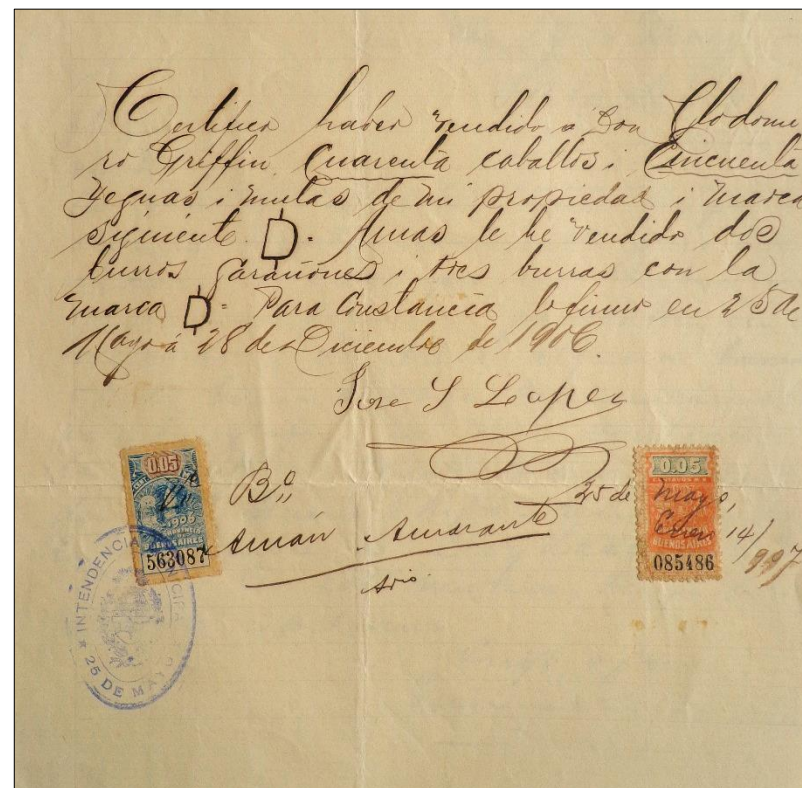 Certifico haber vendido a Don Clodomi
ro Griffin Cuarenta caballos i Cincuenta
Yeguas i mulas de mi propiedad i marca
siguiente. D. Amas le he vendido dos
burros garañones i tres burras con la
marca D. Para Constancia lo firmo en 25 de
Mayo á 28 de Diciembre de 1906.
Jose S Lopez
0.05
1906
BUENOS AIRES
563087
Bº
Amarante
Srio
25 de Mayo,
Enero 14/
907
0.05
BUENOS AIRES
085486
INTENDENCIA MUNICIPAL
25 DE MAYO